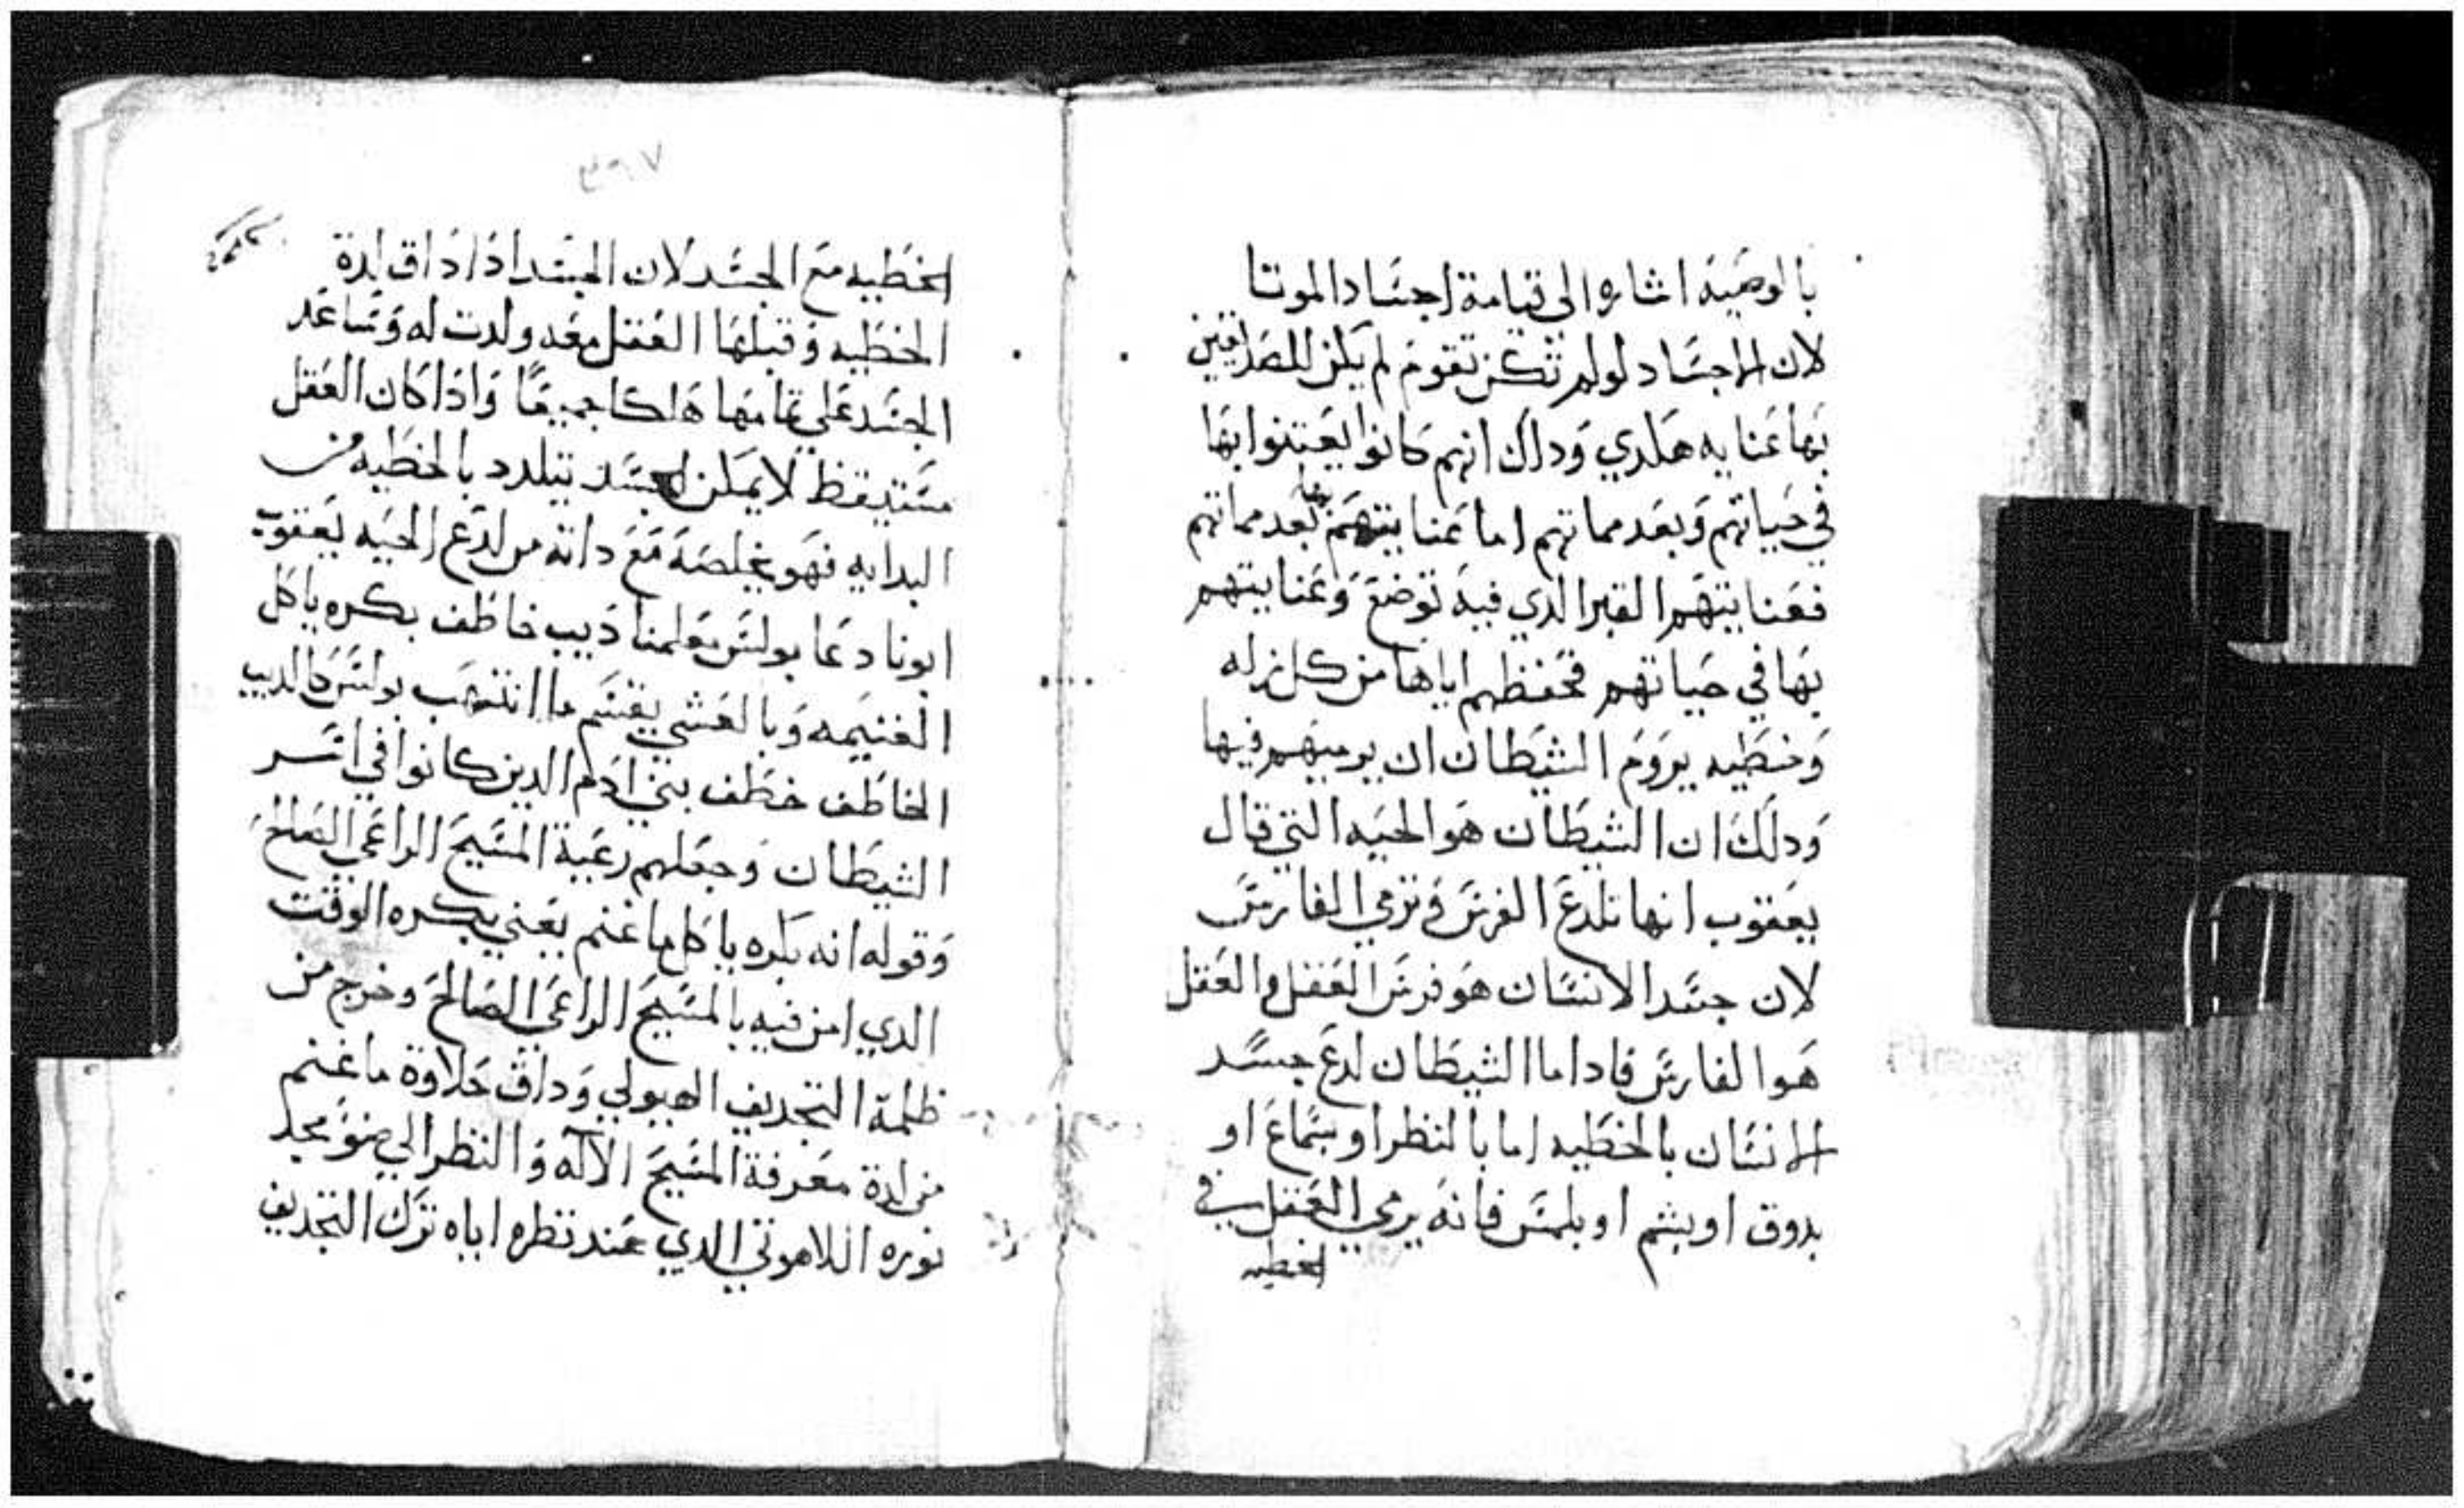 بالوصيه اشاره الى قيامة اجساد الموتا
لان الاجساد لو لم تكن تقوم لم يكن للصديقين
بها عنايه هكدي ودلك انهم كانوا يعتنوا بها
في حياتهم وبعد مماتهم اما عنايتهم بها بعد مماتهم
فعنايتهم القبر الدي فيه توضع وعنايتهم
بها في حياتهم فحفظهم اياها من كل زله
وخطيه يروم الشيطان ان يرميهم فيها
ودلك ان الشيطان هو الحيه التي قال
يعقوب انها تلدع الفرس وترمي الفارس
لان جسد الانسان هو فرس العقل والعقل
هو الفارس فادا ما الشيطان لدع جسد
الانسان بالخطيه اما بالنظر او بسماع او
بدوق او بشم او بلمس فانه يرمي العقل في
الخطيه
٣٦٧
الخطيه مع الجسد لان الجسد ادا داق لدة
الخطيه وقبلها العقل معه ولدت له وساعد
الجسد علي تمامها هلكا جميعًا وادا كان العقل
مستيقظ لا يمكن الجسد يتلدد بالخطيه من
البدايه فهو يخلصه مع داته من لدع الحيه يعقوب
ابونا دعا بولس معلمنا ديب خاطف بكره ياكل
الغنيمه وبالعشي يقسم ما انتهب بولس كالديب
الخاطف خطف بني ادم الدين كانوا في اسر
الشيطان وجعلهم رعية المسيح الراعي الصالح
وقوله انه بكره ياكل ما غنم يعني بكره الوقت
الدي امن فيه بالمسيح الراعي الصالح وخرج من
ظلمة التجديف الهيولي وداق حلاوة ما غنم
من لدة معرفة المسيح الاله والنظر الي ضو مجد
نوره اللاهوتي الدي عند نظره اياه ترك التجديف